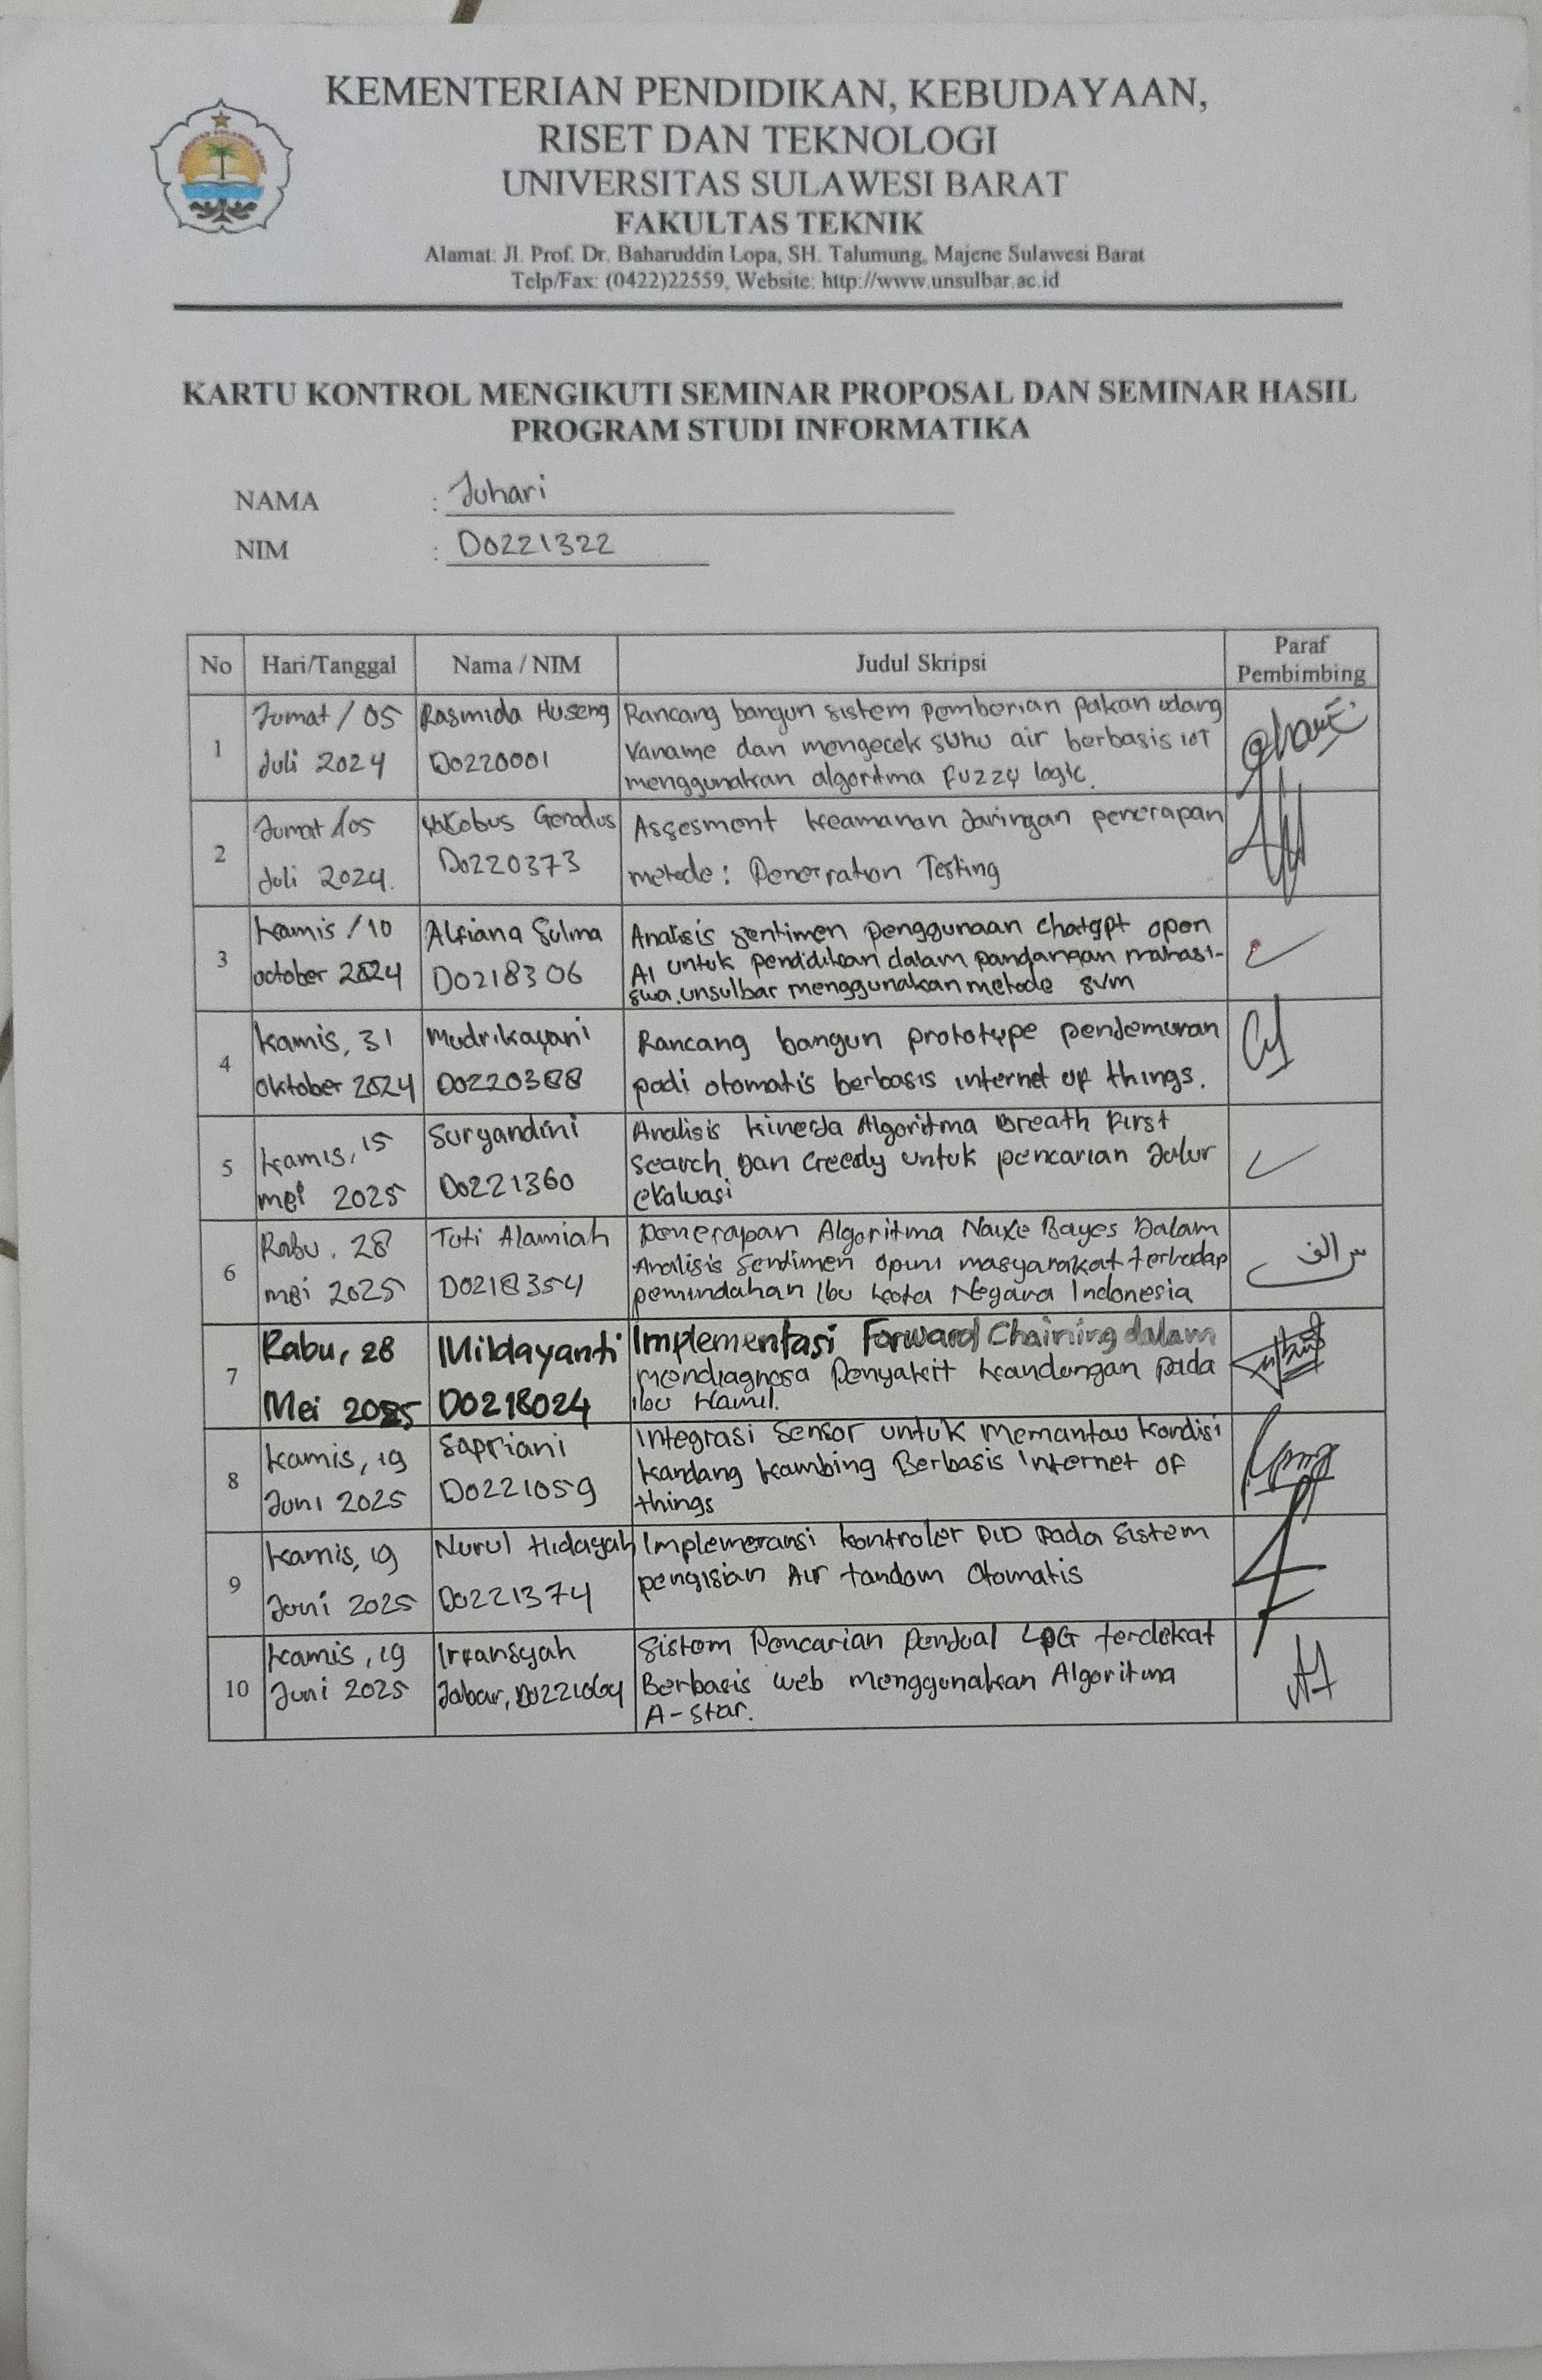 KEMENTERIAN PENDIDIKAN, KEBUDAYAAN,
RISET DAN TEKNOLOGI
UNIVERSITAS SULAWESI BARAT
FAKULTAS TEKNIK
Alamat: Jl. Prof. Dr. Baharuddin Lopa, SH. Talumung, Majene Sulawesi Barat
Telp/Fax: (0422)22559, Website: http://www.unsulbar.ac.id
KARTU KONTROL MENGIKUTI SEMINAR PROPOSAL DAN SEMINAR HASIL
PROGRAM STUDI INFORMATIKA
NAMA : Juhari
NIM : D0221322
No Hari/Tanggal Nama / NIM Judul Skripsi Paraf Pembimbing
1
Jumat / 05
Juli 2024
Rasmida Huseng
D0220001
Rancang bangun sistem pemberian pakan udang
Vaname dan mengecek suhu air berbasis IoT
menggunakan algoritma Fuzzy logic.
2
Jumat / 05
Juli 2024.
Yakobus Geradus
D0220373
Assesment keamanan Jaringan penerapan
metode: Penetration Testing
3
Kamis / 10
october 2024
Alfiana Sulma
D0218306
Analisis sentimen penggunaan chatgpt open
AI untuk pendidikan dalam pandangan mahasi-
swa unsulbar menggunakan metode svm
4
Kamis, 31
Oktober 2024
Mudrikayani
D0220388
Rancang bangun prototype penjemuran
padi otomatis berbasis internet of things.
5
Kamis, 15
mei 2025
Suryandini
D0221360
Analisis kinerja Algoritma Breath First
Search Dan Greedy untuk pencarian Jalur
evakuasi
6
Rabu, 28
mei 2025
Tuti Alamiah
D0218354
Penerapan Algoritma Naive Bayes Dalam
Analisis Sentimen opini masyarakat terhadap
pemindahan Ibu kota Negara Indonesia
7
Rabu, 28
Mei 2025
Mildayanti
D0218024
Implementasi Forward Chaining dalam
mendiagnosa Penyakit kandungan pada
ibu Hamil.
8
Kamis, 19
Juni 2025
Sapriani
D0221059
Integrasi Sensor untuk Memantau Kondisi
kandang kambing Berbasis Internet OF
things
9
Kamis, 19
Juni 2025
Nurul Hidayah
D0221374
Implementasi kontroler PID pada Sistem
pengisian Air tandom Otomatis
10
Kamis, 19
Juni 2025
Irfansyah
Jabar, D0221064
Sistem Pencarian Penjual LPG terdekat
Berbasis web menggunakan Algoritma
A-Star.